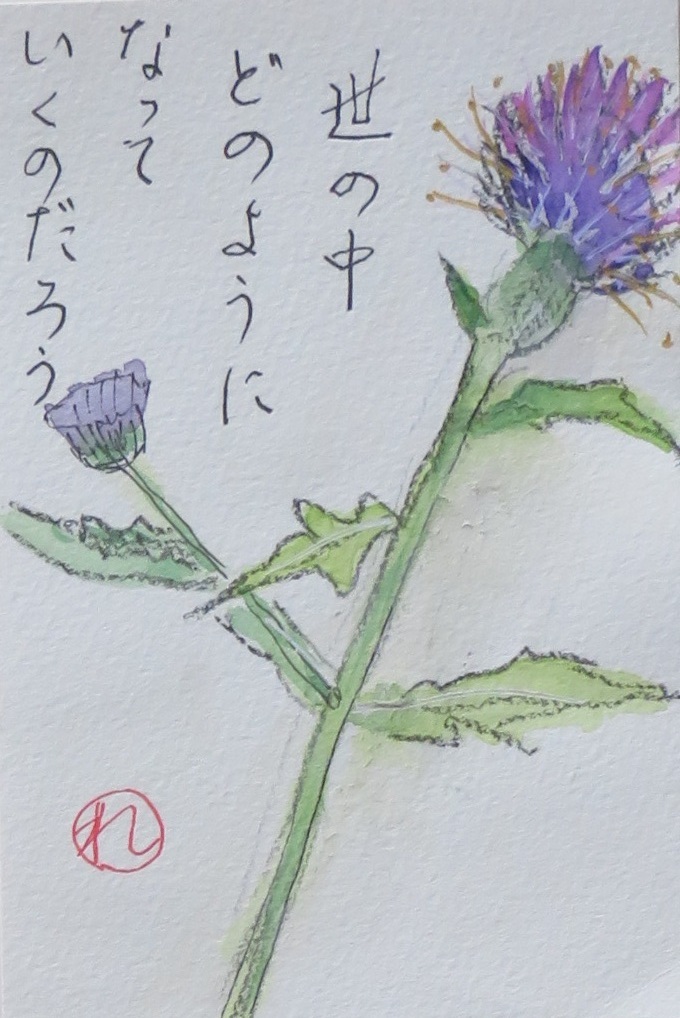 世の中
どのように
なって
いくのだろう
れ